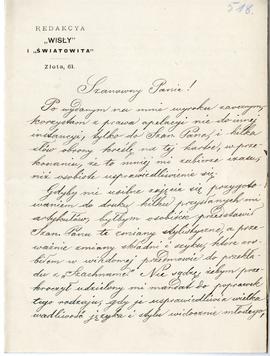 518.
REDAKCYA
„WISŁY”
I „ŚWIATOWITA”
Złota, 61.
Szanowny Panie!
Po wydanym na mnie wyroku zaocznym
korzystam z prawa apelacyi nie do innej
instancyi, tylko do Szan. Pana, i kilka
słów obrony kreślę na tej kartce, w prze-
konaniu, że to mniej zabierze czasu,
niż osobiste usprawiedliwienie się.
Gdyby nie usilne zajęcie się przygoto-
waniem do druku kilku przysłanych mi
artykułów, byłbym osobiście przedstawił
Szan. Panu te zmiany stylistyczne, a prze-
ważnie zmiany składni i szyku, które zro-
biłem w wiadomej przedmowie do przekła-
du z „Szachname”. Nie sądzę, żebym prze-
kroczył udzielony mi mandat do poprawek
tego rodzaju, gdy je usprawiedliwia wielka
wadliwość języka i stylu widocznie młodego,